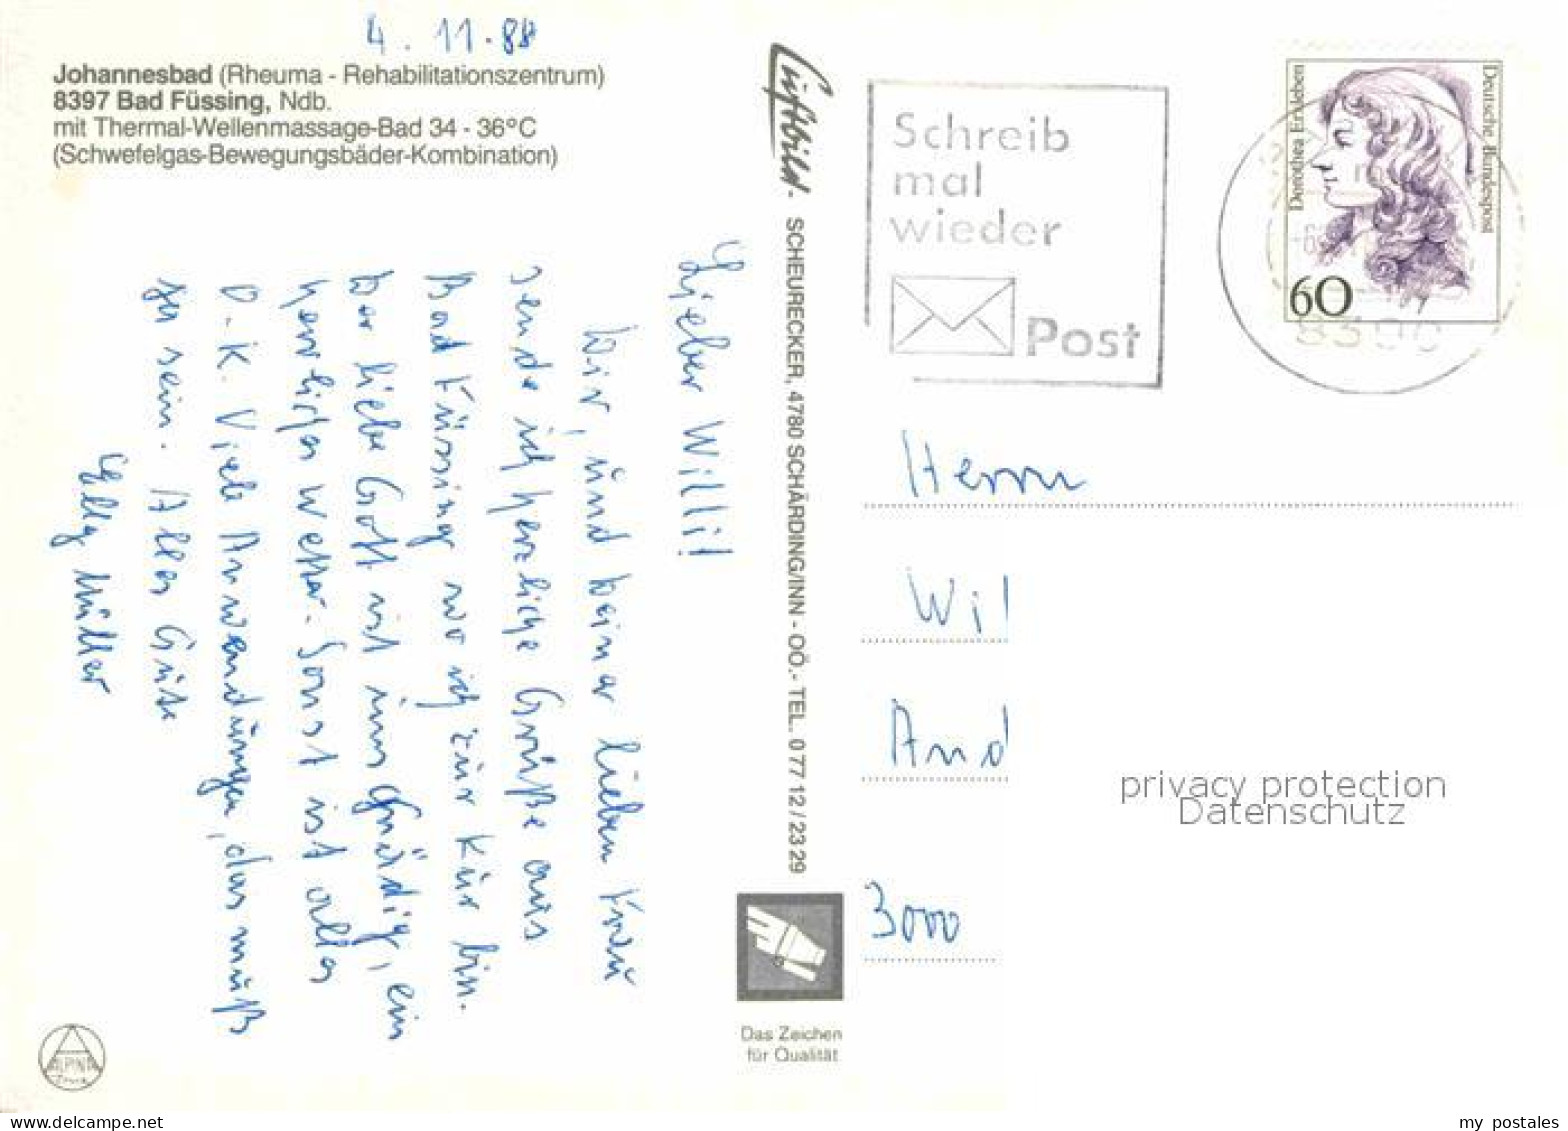 4. 11. 88
Johannesbad (Rheuma - Rehabilitationszentrum)
8397 Bad Füssing, Ndb.
mit Thermal-Wellenmassage-Bad 34 - 36°C
(Schwefelgas-Bewegungsbäder-Kombination)
Lieber Willi!
Dir, und Deiner lieben Frau
sende ich herzliche Grüße aus
Bad Füssing wo ich zur Kur bin.
Der liebe Gott ist uns gnädig, ein
herrliches Wetter. Sonst ist alles
O.K. Viele Anwendungen, das muß
ja sein. Alles Gute
Elly Müller
Luftbild.
SCHEURECKER, 4780 SCHÄRDING/INN - OÖ.- TEL. 0 77 12 / 23 29
Das Zeichen
für Qualität
ALPINA
Druck
Schreib
mal
wieder
Post
Dorothea Erxleben
Deutsche Bundespost
60
8390
Herrn
Wil
And
3000
privacy protection
Datenschutz
my postales